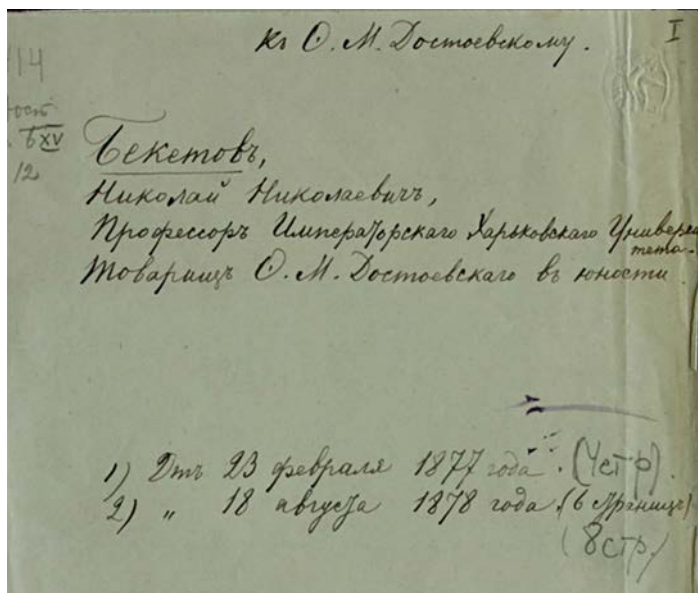 I
Къ Ѳ. М. Достоевскому.
14
XV
12
Бекетовъ,
Николай Николаевичъ,
Профессоръ Императорскаго Харьковскаго Универси
тета.
Товарищъ Ѳ. М. Достоевскаго въ юности
1) Отъ 23 февраля 1877 года. (4 стр)
2) " 18 августа 1878 года. (6 страницъ)
(8 стр.)